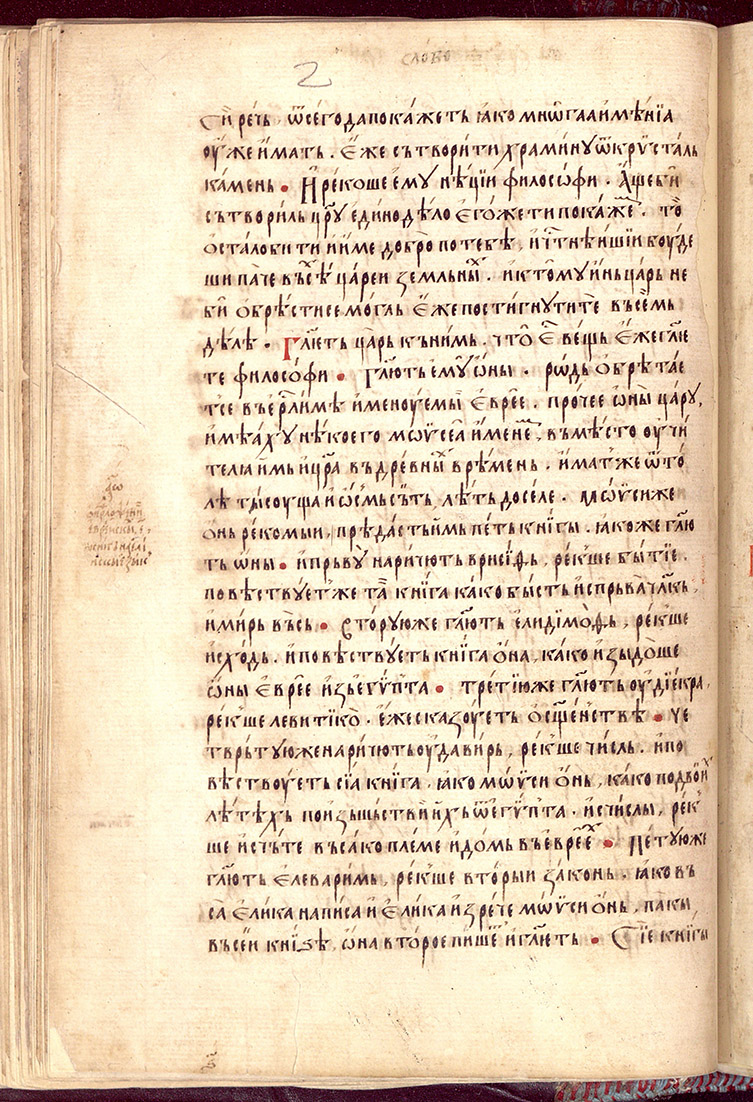 слово
Си́ речь, ѿ сего̀ да пока́жеть ꙗ҆ко мнѡ́гаа и҆мѣ́нїа
оу҆́же и҆́мать. Е҆́же сътвори́ти хра́мину ѿ крѵ̈ста́ль
ка́мень • И҆ реко́ше е҆му нѣ́цїи философи. А҆́ще бѝ
сътвори́ль цр҃у еди́но дѣ́ло е҆го́же ти пока́жеⷨ. то̀
ѻ҆ста́ло би ти и҆ и҆́ме добро̀ по тебѣ̀, и҆ чⷭ҇тнѣ́йшїи боу́де
ши па́че въсѣⷯ царе́и земльныⷯ. и҆ к томꙋ̀ и҆́нь ца́рь не
бѝ ѻ҆брѣ́стисе мо́гль е҆́же пости́гнути тѐ въ се́мь
дѣ́лѣ • Гл҃еть ца́рь къ ни́мь. что̀ е҆ⷭ҇ ве́щь е҆́же гл҃ѥ
те фило́софи • Гл҃ють ему̀ ѻ҆́ны. рѡ́дь ѻ҆брѣта́е
тсе въ е҆рⷭ҇ли́мѣ и҆менꙋ́емыи є҆вре́е. про́чее ѻ҆́ны ца́ру,
и҆мѣ́аху нѣ́коего мѡѵ̈се́а и҆́менеⷨ, въ мѣ́сто оу҆чи́
телꙗ и҆́мь и҆ цр҃а въ дре́вныⷯ вре́мень. и҆́мат же ѿто́
лѣ ты́соуща и ѻ҆́смь сьть лѣ́ть досе́ле. мѡѵ̈си же
ѻ҆́нь реко́мыи, преда́сть и҆́мь пе́ть кни́гы. ꙗ҆ко́же гл҃ю
ть ѻ҆́ны • и҆ прьвꙋ̀ нари́чють врисі́ѳь, ре́кше бы́тїе.
повѣ́ствꙋет же таа̀ кни́га ка́ко бы́сть и҆спрьва чл҃кь,
и҆ ми́рь въсь • Вто́рую же гл҃ють е҆лидимо́ѳь, ре́кше
и҆схо́дь. и҆ повѣ́ствуеть кни́га ѻ҆́на, ка́ко и҆зы́дѡше
ѻ҆́ны є҆вре́е и҆зь е҆гѵ́пта • тре́тїюже гл҃ють оу҆диѐкра,
ре́кше левитїко̀. е҆́же сказоу́еть ѻ҆ сщ҃е́нствѣ • че
твръ́тую же нари́чють оу҆дави́рь, ре́кше чи́сль. и҆ по
вѣ́ствоуеть сїа̀ кни́га. ꙗ҆ко мѡѵ̈си ѻ҆́нь, ка́ко по двоиⷯ
лѣ́тѣхь по и҆зьшьствїи и҆́хь ѿ е҆гѵ́пта. и҆счи́слы, ре́к
ше и҆счь́те въса́ко пле́ме и҆ до́мь въ евре́еⷯ • Пе́тую же
гл҃ють е҆левари́мь, ре́кше вто́рыи за́конь. ꙗ҆ко въ
са̀ е҆ли́ка написа̀ и҆ е҆ли́ка и҆зре́че мѡѵ̈си ѻ҆́нь, па́кы
въ се́и кни́зѣ, ѻ҆на̀ второ́е пи́шеⷮ и҆ гл҃еть • Сїе́ кни́гы